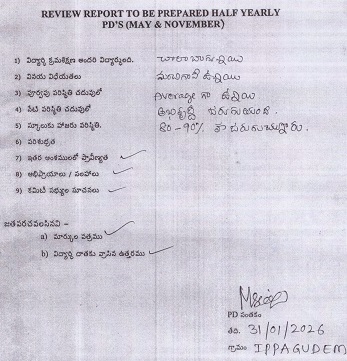 REVIEW REPORT TO BE PREPARED HALF YEARLY
PD'S (MAY & NOVEMBER)
1) విద్యార్థి క్రమశిక్షణ అందరి విద్యార్థులది. చాలా బాగున్నాయి
2) వినయ విధేయతలు మంచిగానే ఉన్నాయి
3) పూర్వపు పరిస్థితి చదువులో Average గా ఉన్నాయి
4) నేటి పరిస్థితి చదువులో అభివృద్ధి జరుగుతుంది.
5) స్కూలుకు హాజరు పరిస్థితి. 80-90% హాజరుగుచున్నారు.
6) పరిశుభ్రత
7) ఇతర అంశములలో ప్రావీణ్యత
8) అభిప్రాయాలు / సలహాలు
9) కమిటీ సభ్యుల సూచనలు
జతపరచవలసినవి –
a) మార్కుల పత్రము
b) విద్యార్థి దాతకు వ్రాసిన ఉత్తరము
PD సంతకం
తేది. 31/01/2026
గ్రామం IPPAGUDEM